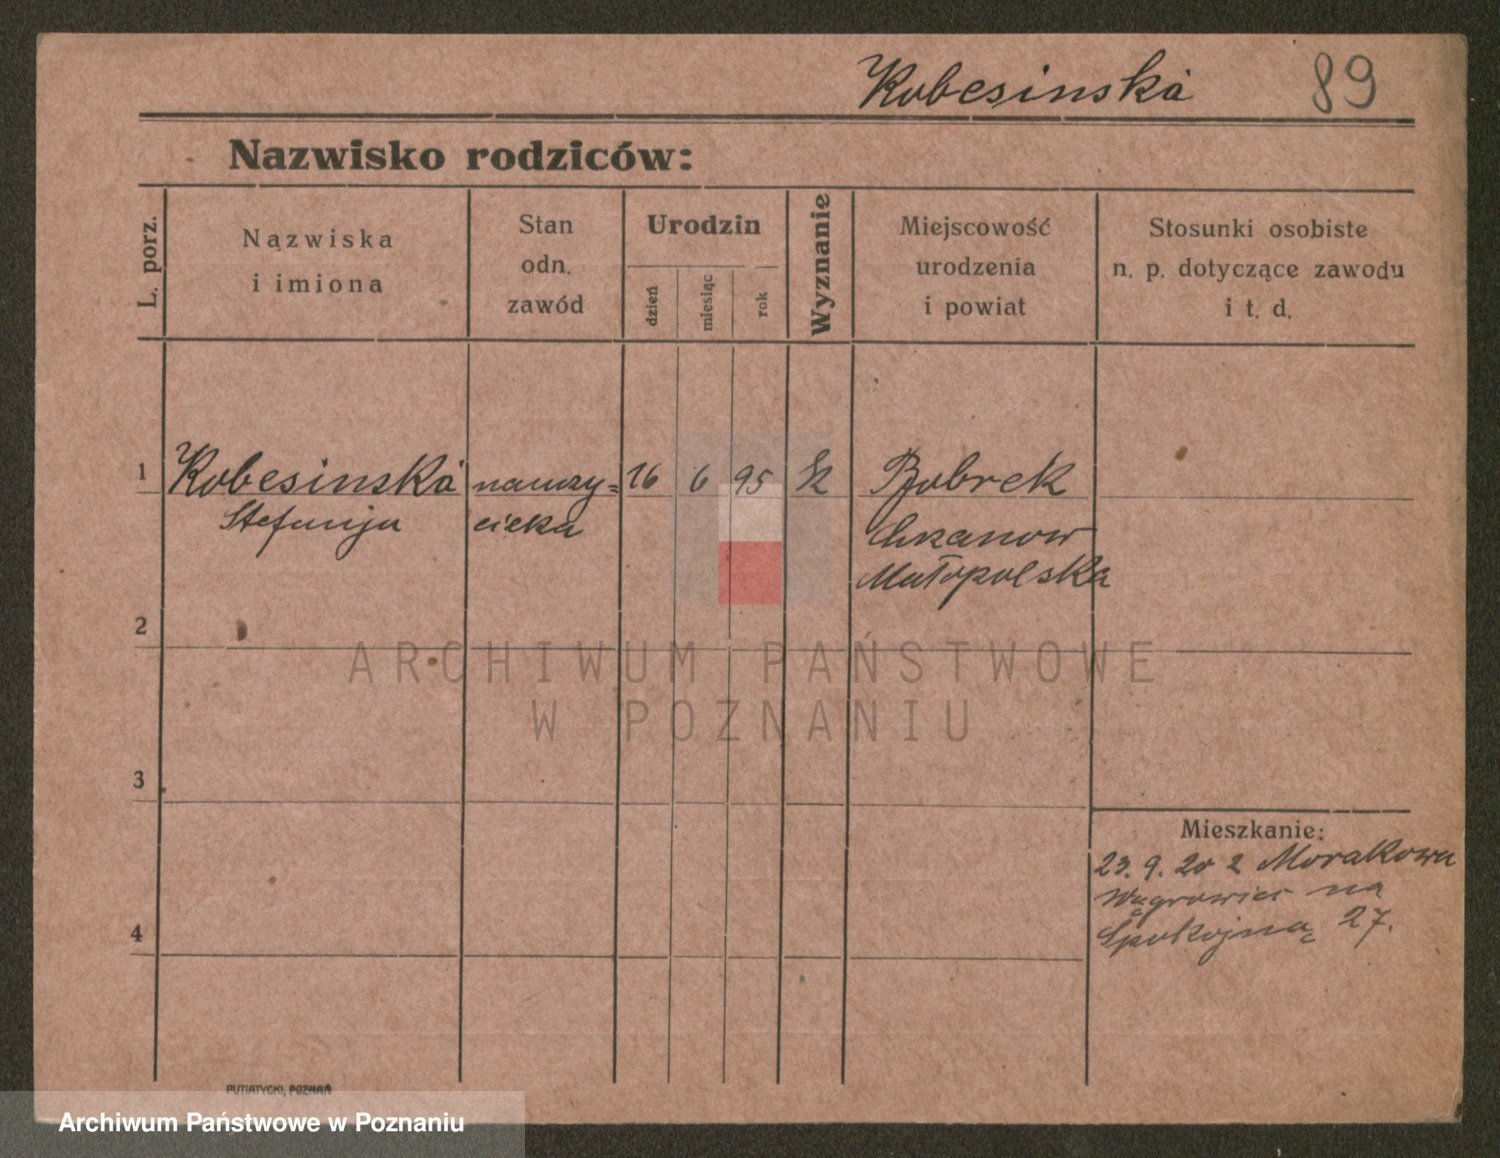 Kobesinska 89
Nazwisko rodziców:
L. porz.
Nązwiska
i imiona
Stan
odn.
zawód
Urodzin
dzień
miesiąc
rok
Wyznanie
Miejscowość
urodzenia
i powiat
Stosunki osobiste
n. p. dotyczące zawodu
i t. d.
1 Kobesinska nauczy= 16 6 95 Bobrek
Stefanja cielka Chrzanow
Małopolska
2
ARCHIWUM PAŃSTWOWE
W POZNANIU
3
Mieszkanie:
23. 9. 20 z Morakowa
Wągrowiec na
4 Spokojną 27.
PUTIATYCKI, POZNAŃ
Archiwum Państwowe w Poznaniu